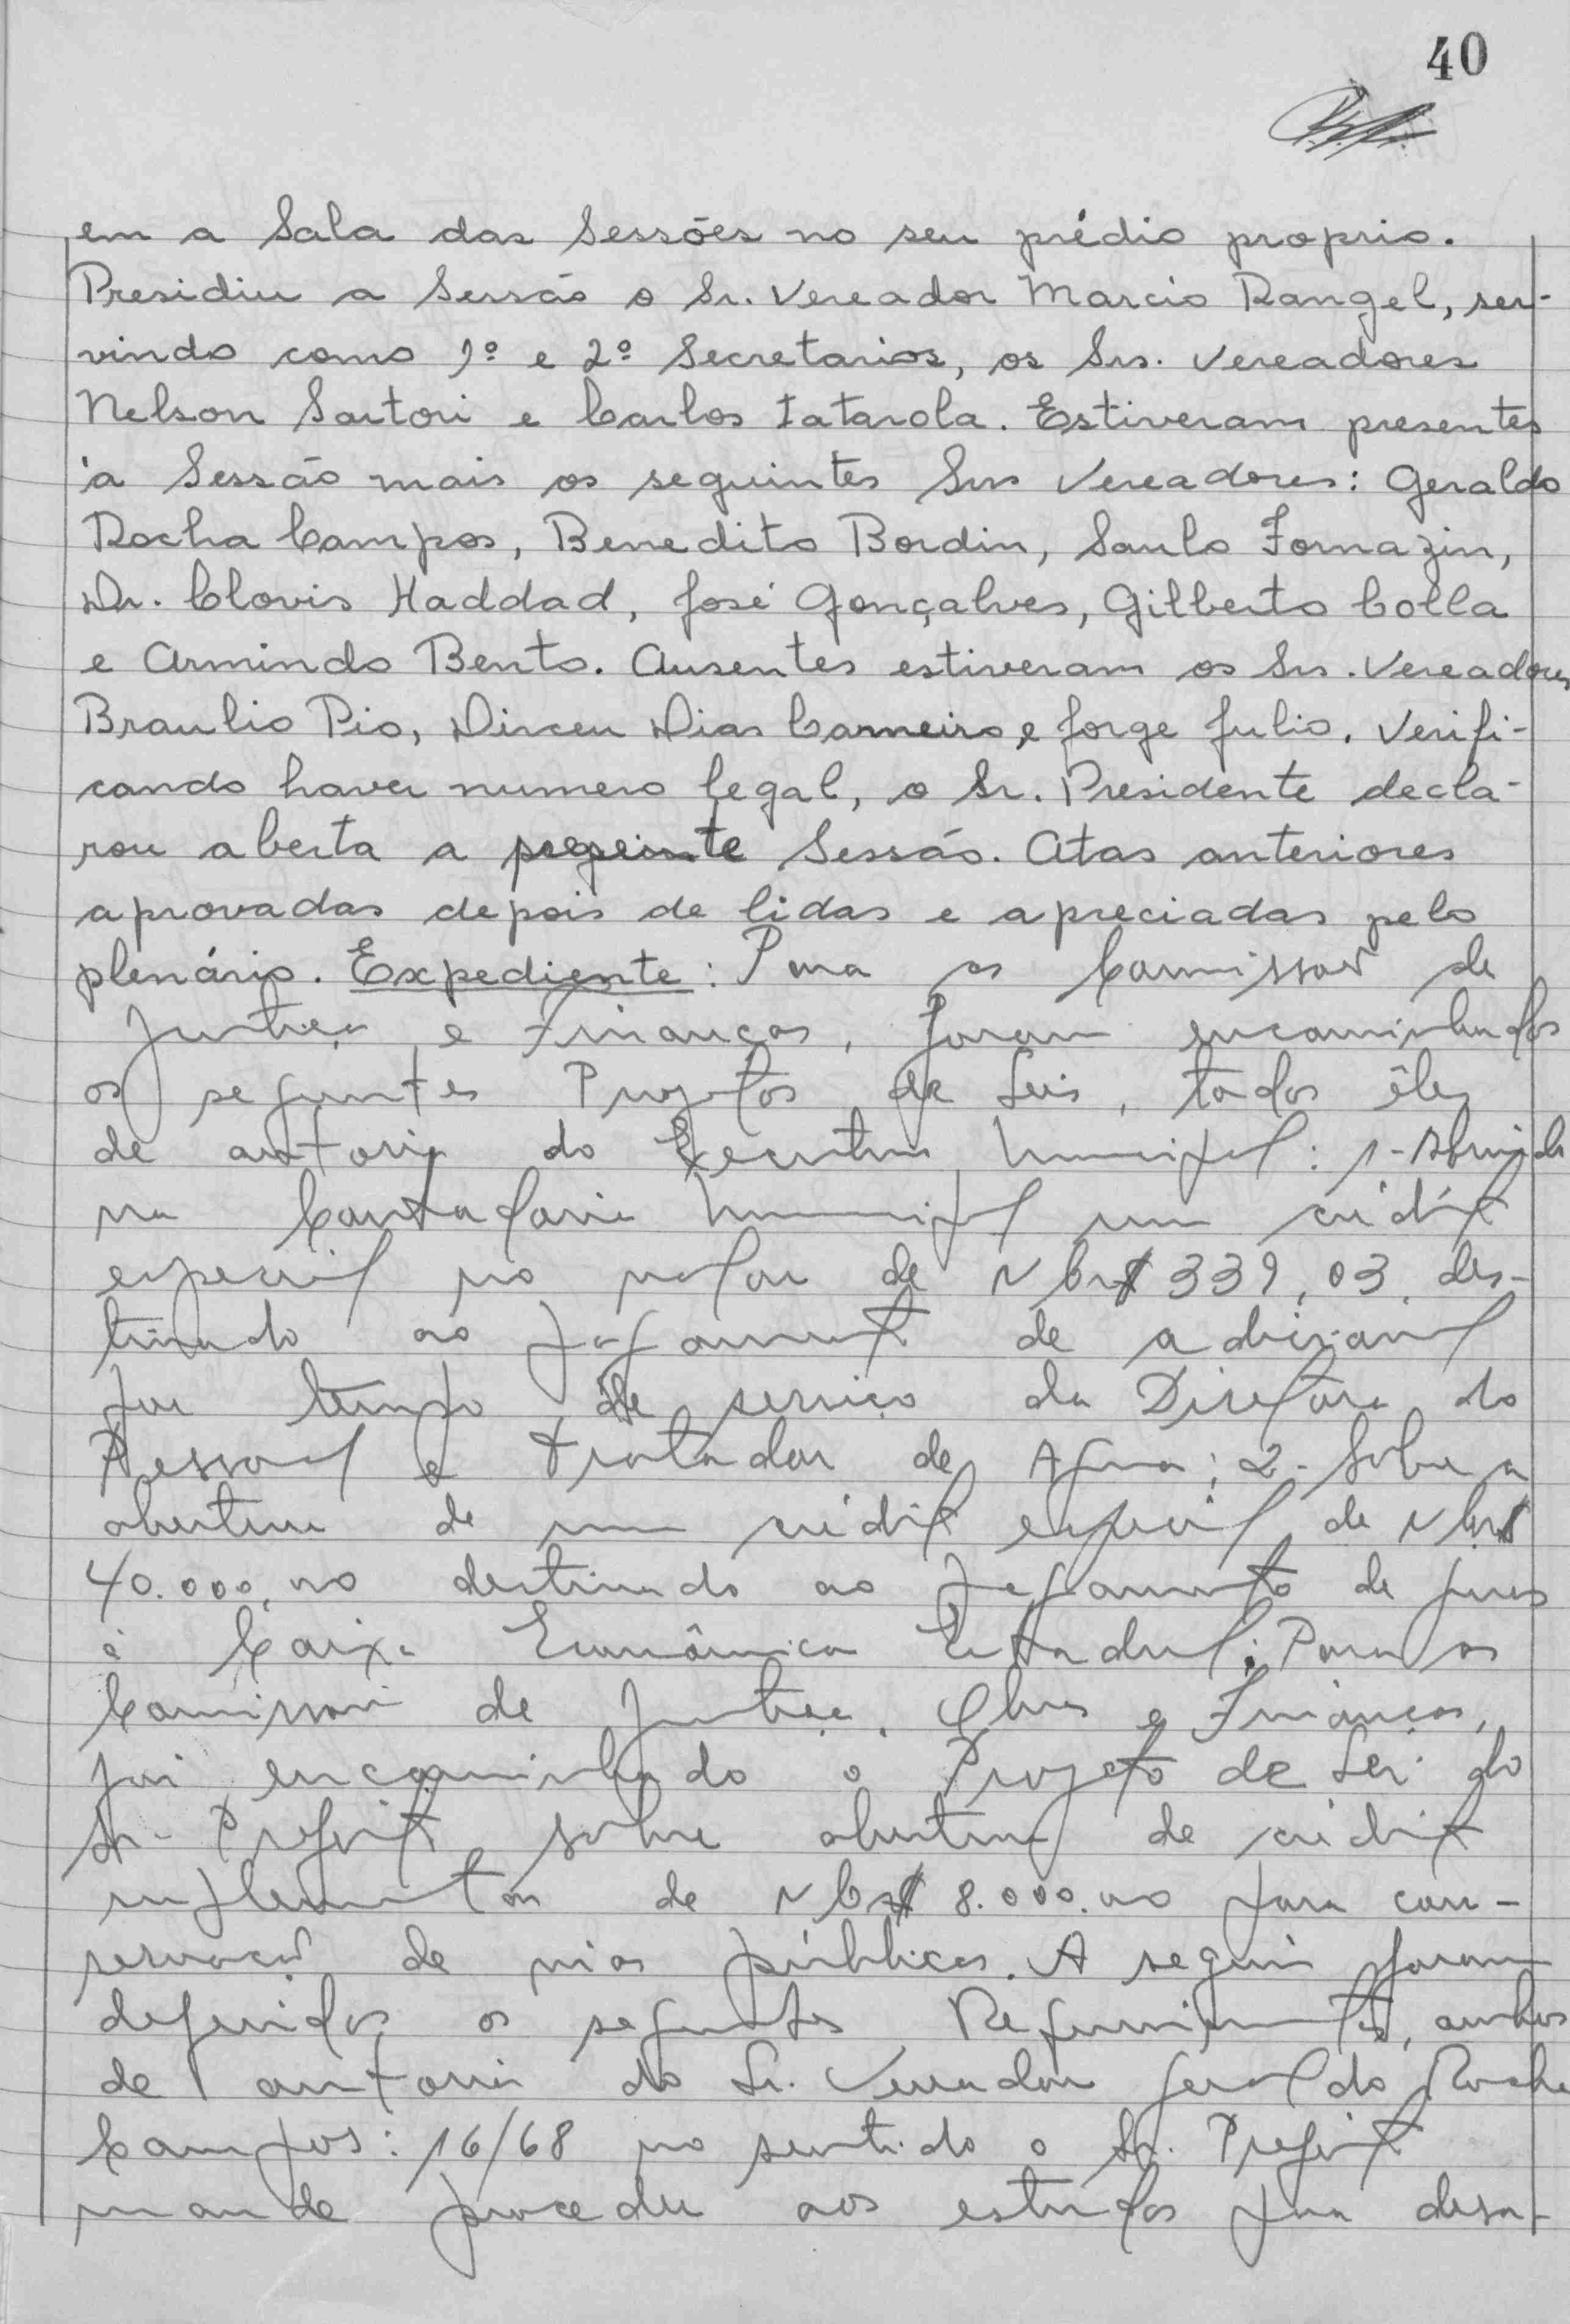 40
em a Sala das Sessões no seu prédio proprio.
Presidiu a Sessão o Sr. Vereador Marcio Rangel, ser-
vindo como 1º e 2º Secretarios, os Srs. Vereadores
Nelson Sartori e Carlos Tatarola. Estiveram presentes
à Sessão mais os seguintes Srs Vereadores: Geraldo
Rocha Campos, Benedito Bordin, Saulo Fornazin,
Dr. Clovis Haddad, José Gonçalves, Gilberto Colla
e Armindo Bento. Ausentes estiveram os Srs. Vereadores
Braulio Pio, Dirceu Dias Carneiro e Jorge Julio. Verifi-
cando haver numero legal, o Sr. Presidente decla-
rou aberta a Sessão. Atas anteriores
aprovadas depois de lidas e apreciadas pelo
plenário. Expediente: Para as Comissoes de
Justiça e Finanças, foram encaminhados
os seguintes Projetos de Leis, todos êles
de autoria do Executivo Municipal: 1-Abrindo
na Contadoria Municipal um crédito
especial no valor de NCr$ 339,03, des-
tinado ao pagamento de adicional
por tempo de serviço da Diretora do
Pessoal e tratador de Agua; 2- Sobre a
abertura de um crédito especial de NCr$
40.000,00 destinado ao pagamento de juros
à Caixa Econômica Estadual; Para as
Comissoes de Justiça, Obras e Finanças,
foi encaminhado o Projeto de Lei do
Sr. Prefeito sobre abertura de crédito
suplementar de NCr$ 8.000.00 para con-
servação de vias públicas. A seguir foram
deferidos os seguintes Requerimentos, ambos
de autoria do Sr. Vereador Geraldo Rocha
Campos: 16/68 no sentido o Sr. Prefeito
mande proceder aos estudos para desa-